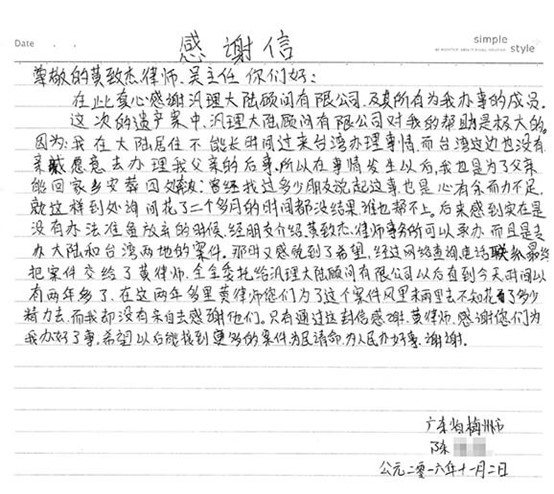 Date
simple
style
感谢信
尊敬的黄致杰律师、吴主任 你们好：
在此真心感谢汎理大陆顾问有限公司,及其所有为我办事的成员.
这次的遗产案中,汎理大陆顾问有限公司对我的帮助是极大的。
因为:我在大陆居住不能长时间过来台湾办理事情而台湾这边也没有
亲戚愿意去办理我父亲的后事.所以在事情发生以后,我也是为了父亲
能回家乡安葬四处 曾经找过多少朋友说起这事也是心有余而力不足,
就这样到处询问花了二个多月的时间都没结果,谁也帮不上。后来感到实在是
没有办法准备放弃的时候,经朋友介绍黄致杰律师事务所可以承办而且是专
办大陆和台湾两地的案件。那时又感觉到了希望,经过网络查询电话联系最终
把案件交给了黄律师.全全委托给汎理大陆顾问有限公司以后直到今天时间以
有两年多了.在这两年多里黄律师您们为了这个案件风里来雨里去不知花了多少
精力去.而我却没有亲自去感谢他们。只有通过这封信感谢.黄律师.感谢您们为
我办好了事,希望以后能找到更多的案件为民请命.为人民办好事.谢谢.
广东省梅州市
陈
公元二零一六年十一月二日